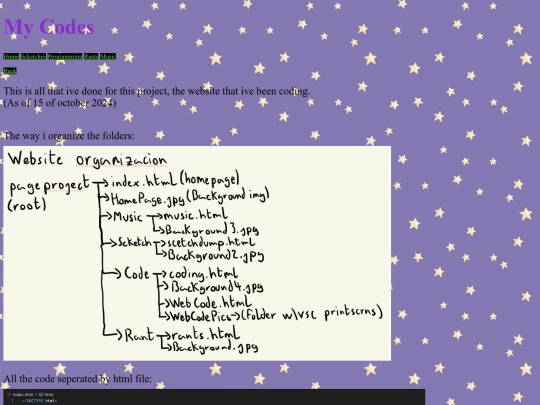 My Codes
Home Scketches Programming Rants Music
Back
This is all that ive done for this project, the website that ive been coding.
(As of 15 of october 2024)
The way i organize the folders:
Website organizacion
pageproject → index.html (homepage)
(root) → HomePage.jpg (Background img)
→ Music → music.html
→ Background3.jpg
→ Scketch → scetchdump.html
→ Background2.jpg
→ Code → coding.html
→ Background4.jpg
→ WebCode.html
→ WebCodePics → (folder w\vsc printscrns)
→ Rant → rants.html
→ Background.jpg
All the code seperated by html file:
index.html > html
1 <!DOCTYPE html>